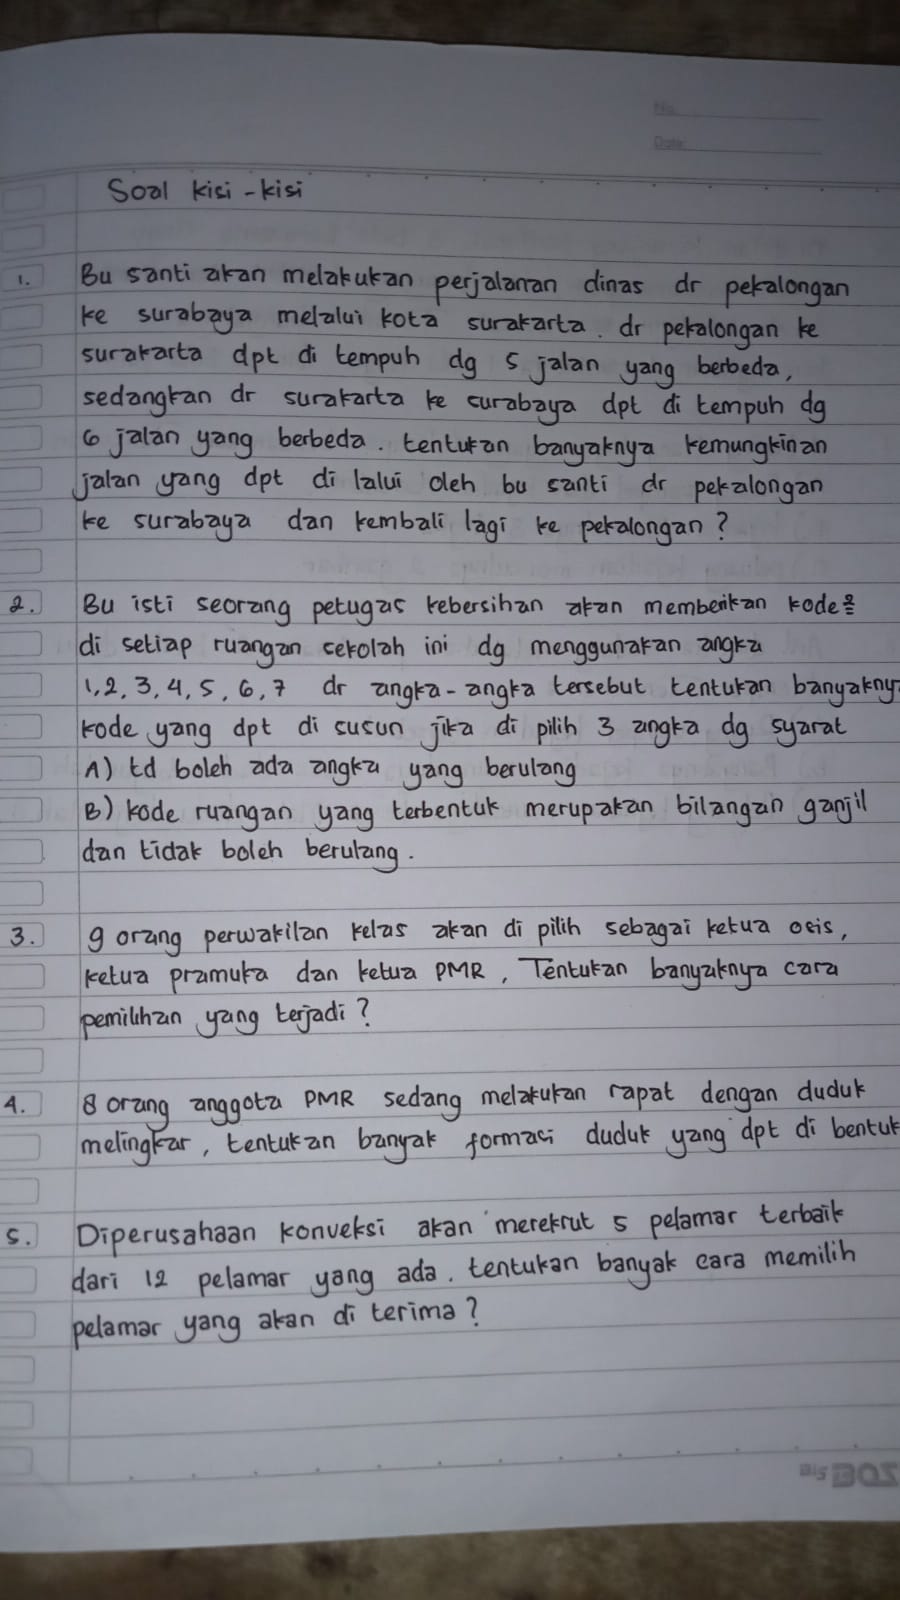 No.
Date
Soal kisi-kisi
1. Bu santi akan melakukan perjalanan dinas dr pekalongan
ke surabaya melalui kota surakarta. dr pekalongan ke
surakarta dpt di tempuh dg 5 jalan yang berbeda,
sedangkan dr surakarta ke surabaya dpt di tempuh dg
6 jalan yang berbeda. tentukan banyaknya kemungkinan
jalan yang dpt di lalui oleh bu santi dr pekalongan
ke surabaya dan kembali lagi ke pekalongan?
2. Bu isti seorang petugas kebersihan akan memberikan kode²
di setiap ruangan sekolah ini dg menggunakan angka
1, 2, 3, 4, 5, 6, 7 dr angka-angka tersebut tentukan banyakny
kode yang dpt di susun jika di pilih 3 angka dg syarat
A) td boleh ada angka yang berulang
B) kode ruangan yang terbentuk merupakan bilangan ganjil
dan tidak boleh berulang.
3. 9 orang perwakilan kelas akan di pilih sebagai ketua osis,
ketua pramuka dan ketua PMR, Tentukan banyaknya cara
pemilihan yang terjadi?
4. 8 orang anggota PMR sedang melakukan rapat dengan duduk
melingkar, tentukan banyak formasi duduk yang dpt di bentuk
5. Diperusahaan konveksi akan merekrut 5 pelamar terbaik
dari 12 pelamar yang ada. tentukan banyak cara memilih
pelamar yang akan di terima?